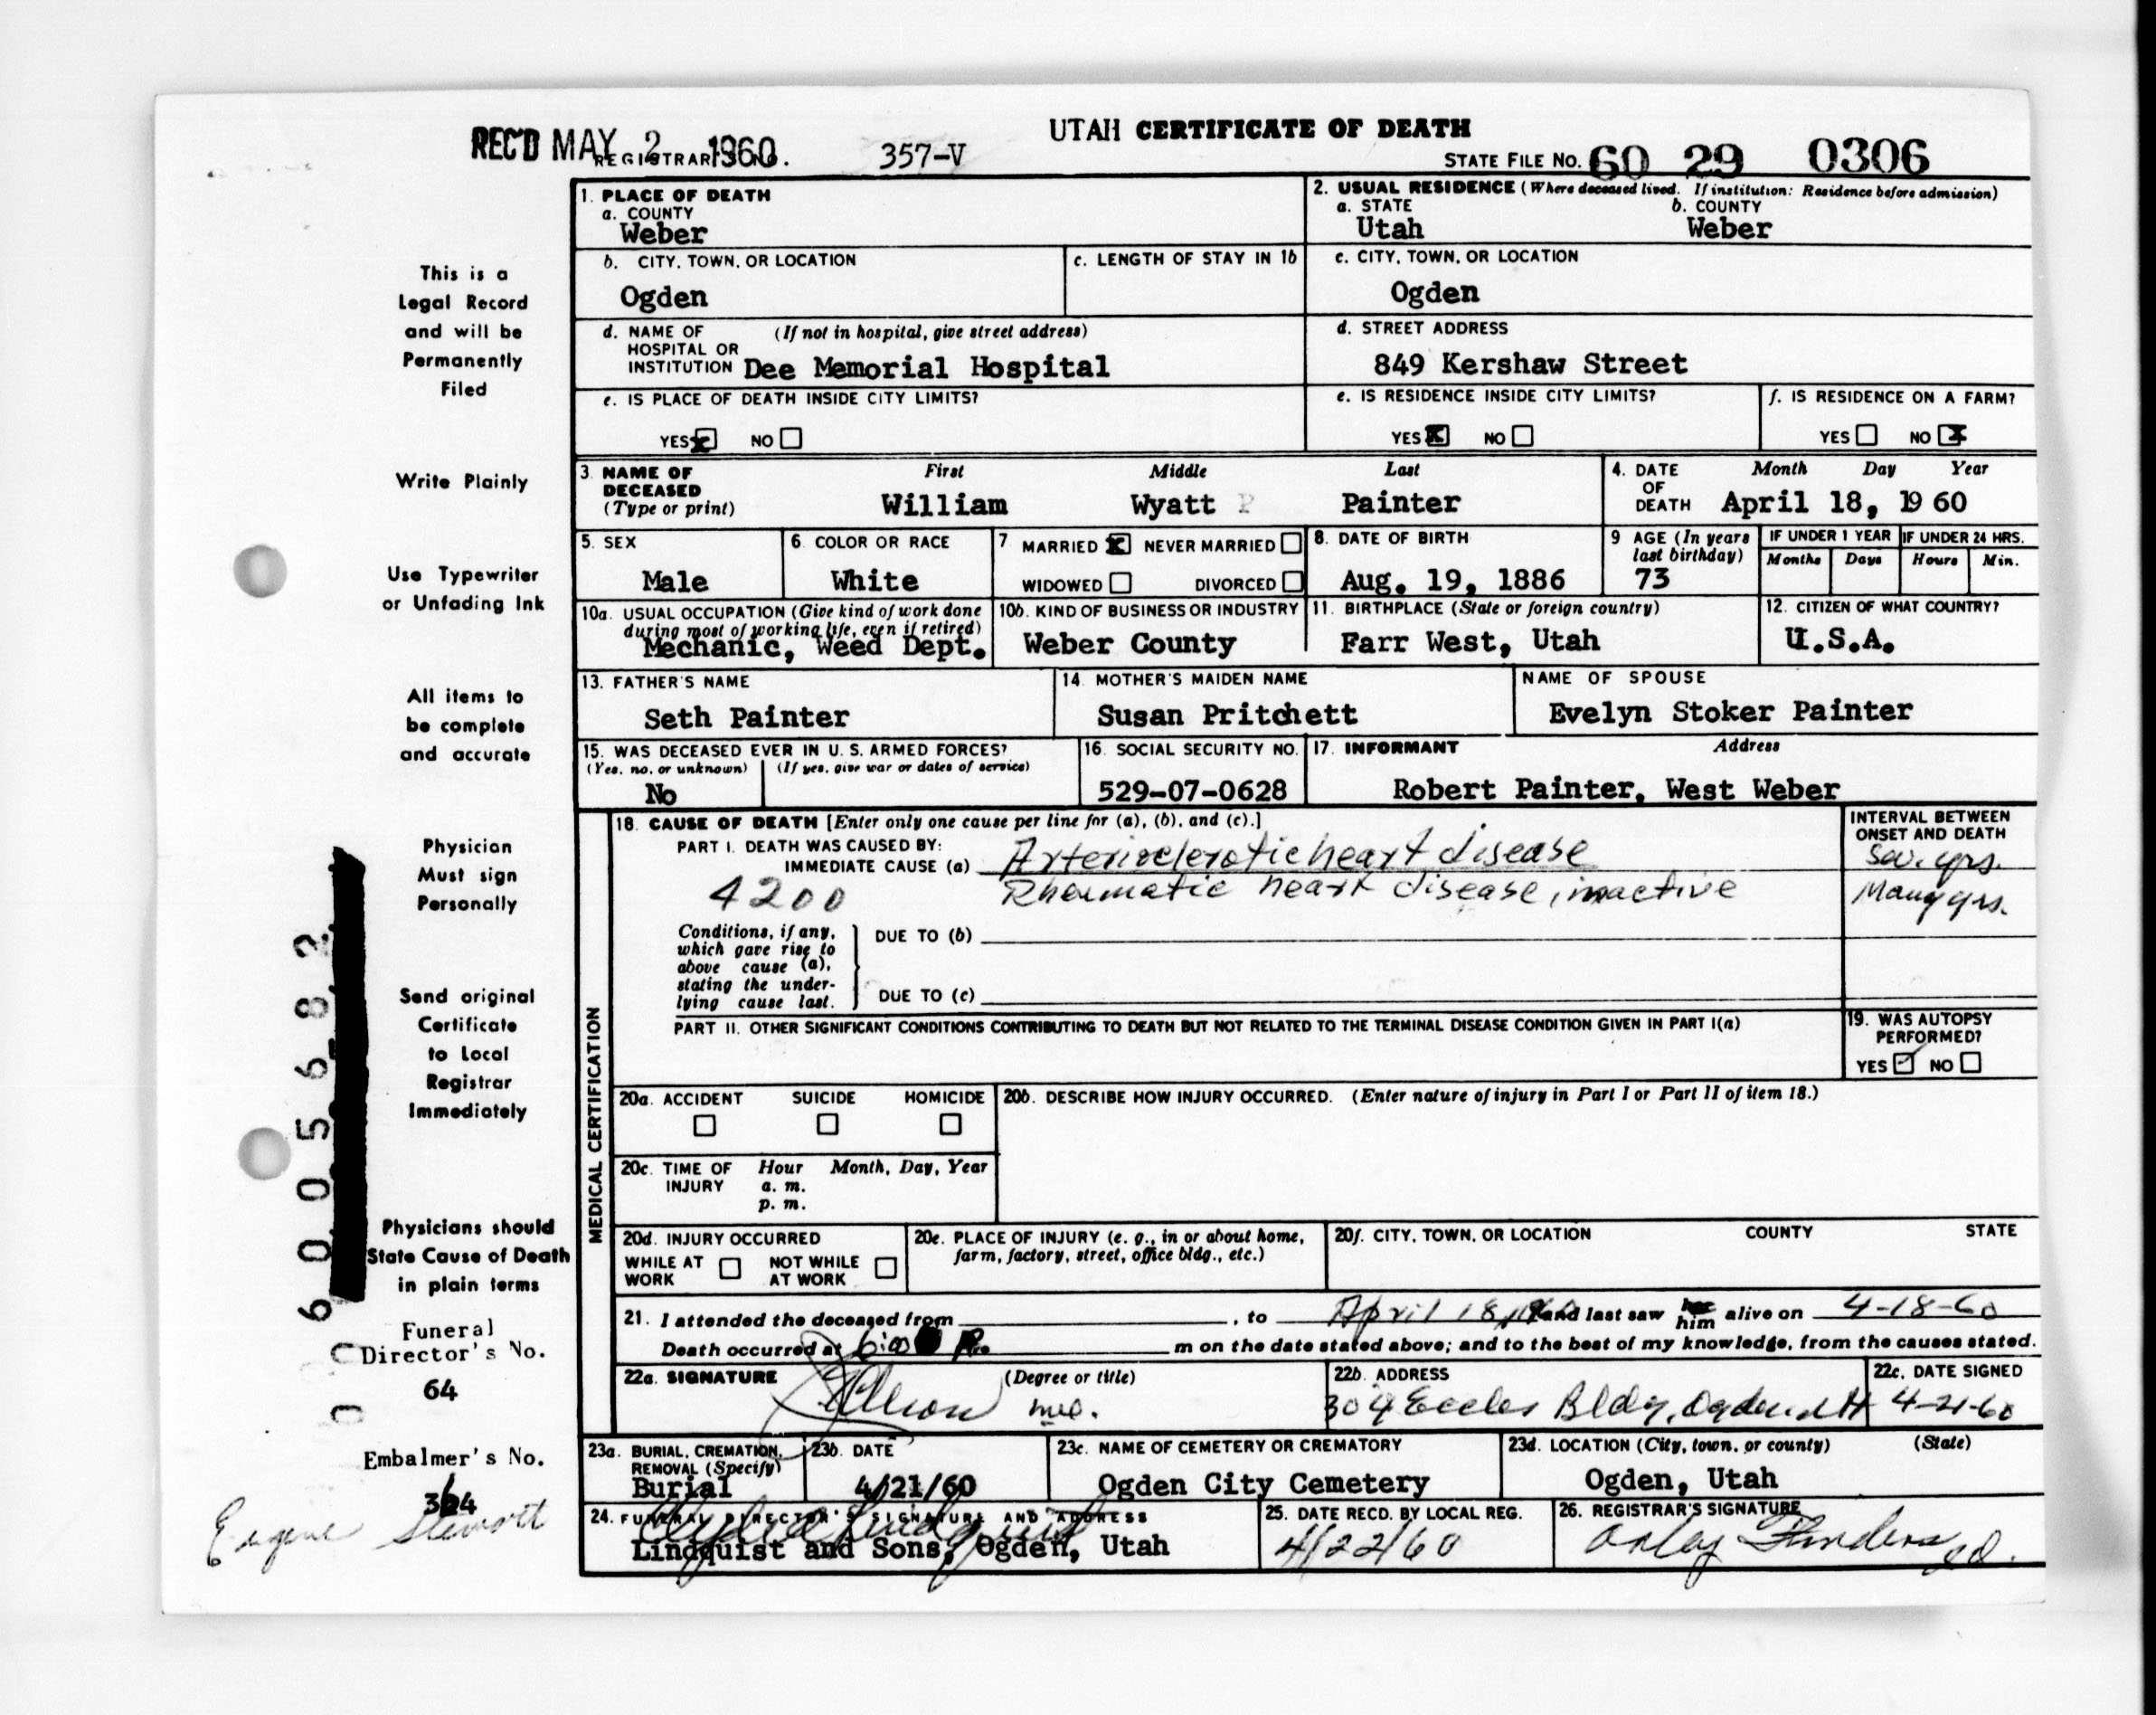 UTAH CERTIFICATE OF DEATH
REC'D MAY 2 1960
REGISTRAR'S NO. 357-V
STATE FILE NO. 60 29 0306
This is a
Legal Record
and will be
Permanently
Filed
Write Plainly
Use Typewriter
or Unfading Ink
All items to
be complete
and accurate
Physician
Must sign
Personally
Send original
Certificate
to Local
Registrar
Immediately
Physicians should
State Cause of Death
in plain terms
Funeral
Director's No.
64
Embalmer's No.
Eugene Stewart
1. PLACE OF DEATH
a. COUNTY
Weber
2. USUAL RESIDENCE (Where deceased lived. If institution: Residence before admission)
a. STATE b. COUNTY
Utah Weber
b. CITY, TOWN, OR LOCATION
Ogden
c. LENGTH OF STAY IN 1b
c. CITY, TOWN, OR LOCATION
Ogden
d. NAME OF (If not in hospital, give street address)
HOSPITAL OR
INSTITUTION Dee Memorial Hospital
d. STREET ADDRESS
849 Kershaw Street
e. IS PLACE OF DEATH INSIDE CITY LIMITS?
YES x NO
e. IS RESIDENCE INSIDE CITY LIMITS?
YES X NO
f. IS RESIDENCE ON A FARM?
YES NO X
3. NAME OF DECEASED (Type or print)
First Middle Last
William Wyatt P Painter
4. DATE OF DEATH Month Day Year
April 18, 1960
5. SEX
Male
6. COLOR OR RACE
White
7 MARRIED X NEVER MARRIED
WIDOWED DIVORCED
8. DATE OF BIRTH
Aug. 19, 1886
9 AGE (In years last birthday)
73
IF UNDER 1 YEAR IF UNDER 24 HRS.
Months Days Hours Min.
10a. USUAL OCCUPATION (Give kind of work done
during most of working life, even if retired)
Mechanic, Weed Dept.
10b. KIND OF BUSINESS OR INDUSTRY
Weber County
11. BIRTHPLACE (State or foreign country)
Farr West, Utah
12. CITIZEN OF WHAT COUNTRY?
U.S.A.
13. FATHER'S NAME
Seth Painter
14. MOTHER'S MAIDEN NAME
Susan Pritchett
NAME OF SPOUSE
Evelyn Stoker Painter
15. WAS DECEASED EVER IN U. S. ARMED FORCES?
(Yes, no, or unknown) (If yes, give war or dates of service)
No
16. SOCIAL SECURITY NO.
529-07-0628
17. INFORMANT Address
Robert Painter, West Weber
MEDICAL CERTIFICATION
18. CAUSE OF DEATH [Enter only one cause per line for (a), (b), and (c).]
INTERVAL BETWEEN
ONSET AND DEATH
PART I. DEATH WAS CAUSED BY:
IMMEDIATE CAUSE (a) Arteriosclerotic heart disease Sev. yrs.
4200 Rheumatic heart disease, inactive Many yrs.
Conditions, if any,
which gave rise to
above cause (a),
stating the under-
lying cause last.
DUE TO (b)
DUE TO (c)
PART II. OTHER SIGNIFICANT CONDITIONS CONTRIBUTING TO DEATH BUT NOT RELATED TO THE TERMINAL DISEASE CONDITION GIVEN IN PART I(a)
19. WAS AUTOPSY
PERFORMED?
YES ✓ NO
20a. ACCIDENT SUICIDE HOMICIDE
20b. DESCRIBE HOW INJURY OCCURRED. (Enter nature of injury in Part I or Part II of item 18.)
20c. TIME OF INJURY Hour Month, Day, Year
a. m.
p. m.
20d. INJURY OCCURRED
WHILE AT WORK NOT WHILE AT WORK
20e. PLACE OF INJURY (e. g., in or about home,
farm, factory, street, office bldg., etc.)
20f. CITY, TOWN, OR LOCATION COUNTY STATE
21. I attended the deceased from , to April 18, 1960 and last saw her him alive on 4-18-60
Death occurred at 6:00 P. m on the date stated above; and to the best of my knowledge, from the causes stated.
22a. SIGNATURE (Degree or title)
M.D.
22b. ADDRESS
304 Eccles Bldg, Ogden, Ut
22c. DATE SIGNED
4-21-60
23a. BURIAL, CREMATION,
REMOVAL (Specify)
Burial
23b. DATE
4/21/60
23c. NAME OF CEMETERY OR CREMATORY
Ogden City Cemetery
23d. LOCATION (City, town, or county) (State)
Ogden, Utah
24. FUNERAL DIRECTOR'S SIGNATURE AND ADDRESS
Lindquist and Sons, Ogden, Utah
25. DATE RECD. BY LOCAL REG.
4/22/60
26. REGISTRAR'S SIGNATURE